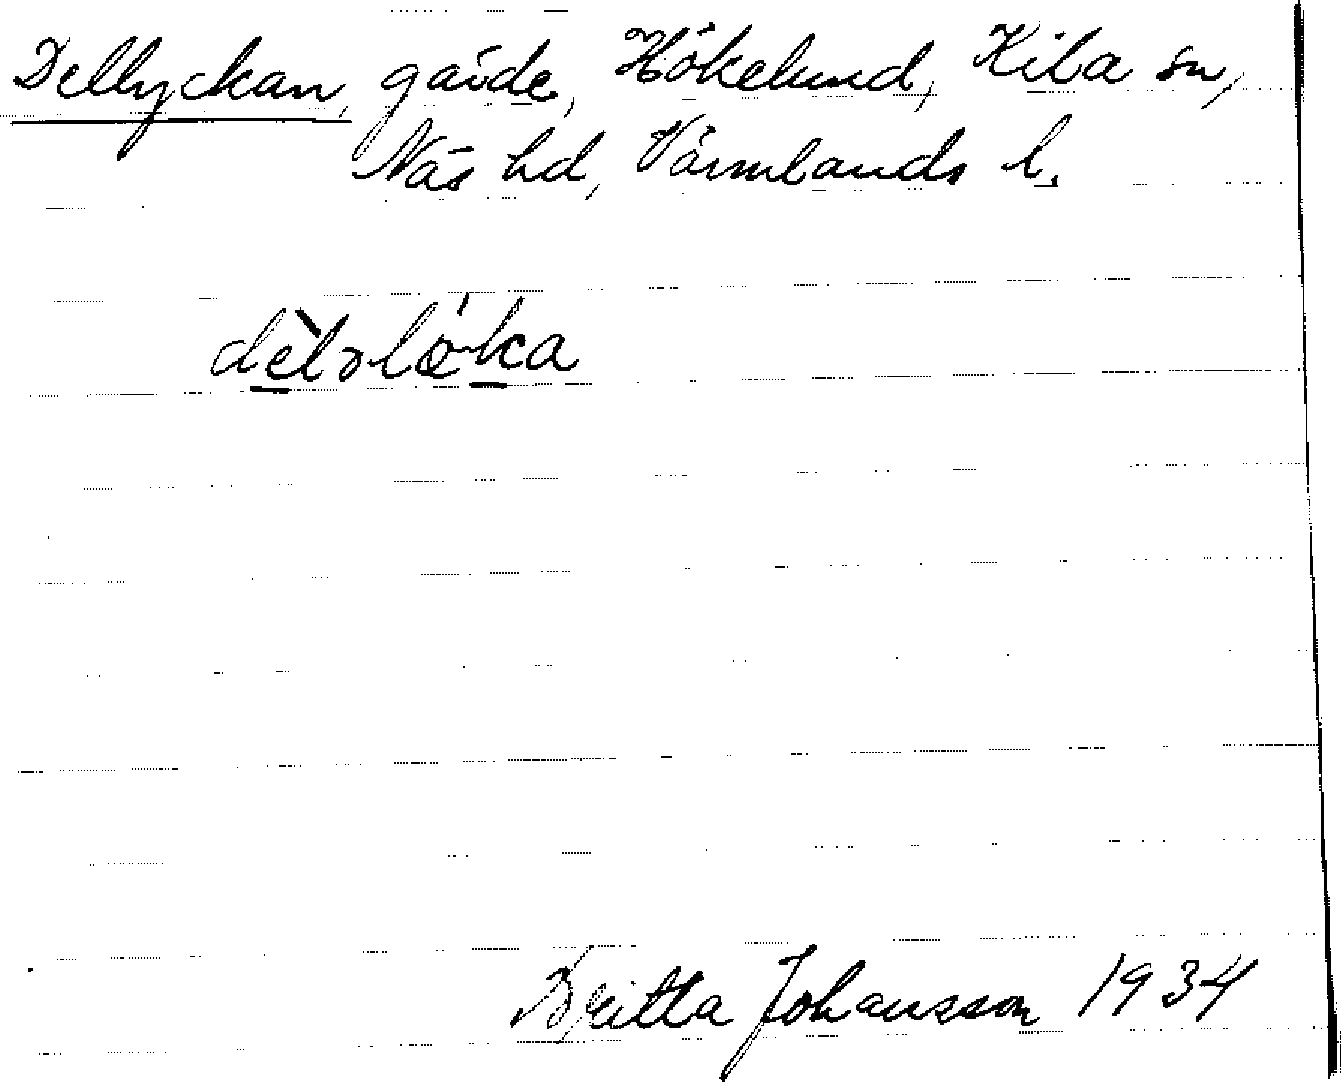 Dellyckan, gärde, Hökelund, Kila sn,
Näs hd, Värmlands l.
Britta Johansson 1934